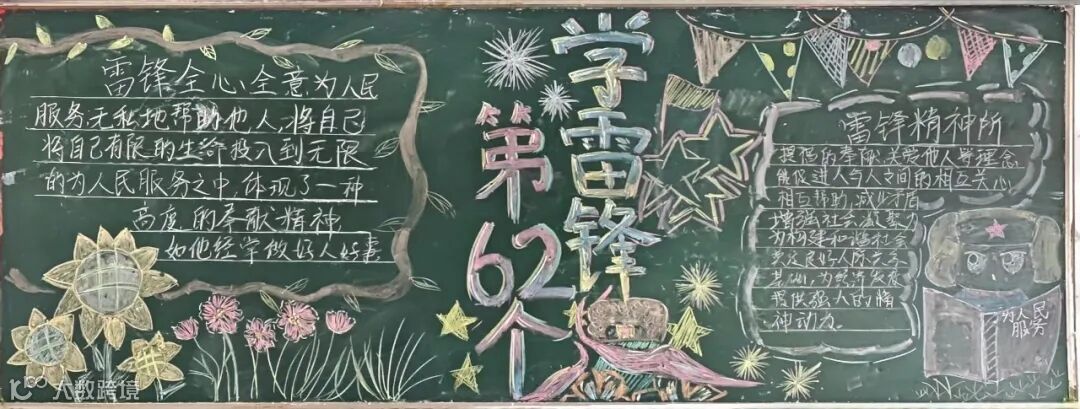 雷锋全心全意为人民
服务,无私地帮助他人,将自己
将自己有限的生命投入到无限
的为人民服务之中,体现了一种
高度的奉献精神
如他经学做好人好事
第62个
学雷锋
雷锋精神所
提倡的奉献,关爱他人等理念
能促进人与人之间的相互关心
相互帮助,减少矛盾
增强社会凝聚力
为构建和谐社会
奠定良好人际关系
基础,为经济发展
提供强大的精
神动力。
为人民
服务
大数跨境